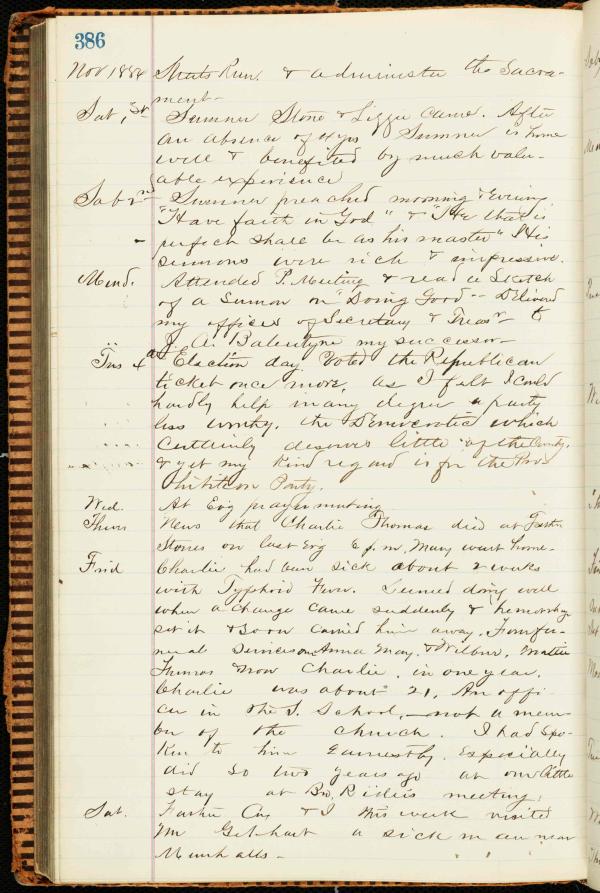 386
Nov 1884 Streets Run. & administer the Sacra-
ment-
Sat, 1st Sumner Stone & Lizzie came. After
an absence of 4 yrs Sumner is home
well & benefited by much valu-
able experience
Sab 2nd Sumner preached morning & Evening.
"Have faith in God" & "He that is
perfect shall be as his master" His
sermons were rich & impressive.
Mond. Attended P. Meeting & read a Sketch
of a Sermon on "Doing Good" - Delivered
my offices of Secretary & Treasr to
J. A. Balentyne my successor-
Tues 4 Election day. Voted the Republican
ticket once more, as I felt I could
hardly help in any degree a party
less worthy. the Democratic which
Certainly deserves little of the County.
& yet my Kind regard is for the Pro
hibition Party.
Wed. At Evg prayer meeting
Thurs News that Charlie Thomas died at
Stones on last Evg 6 p.m. Mary went home-
Frid Charlie had been sick about 2 weeks
with Typhoid Fever. Seemed doing well
when a change came suddenly & hemorrhage
set in & soon carried him away. Four fu-
neral Services on Anna May, & Wilbur, Mattie
Thomas & now Charlie, in one year.
Charlie was about 21. An offi-
cer in the S. School, - not a mem-
ber of the church. I had spo-
ken to him Earnestly. Especially
did so two years ago at our little
stay at Bro. meeting.
Sat. Cas & I this week visited
Mr Gebhart a sick man near
Munhalls -